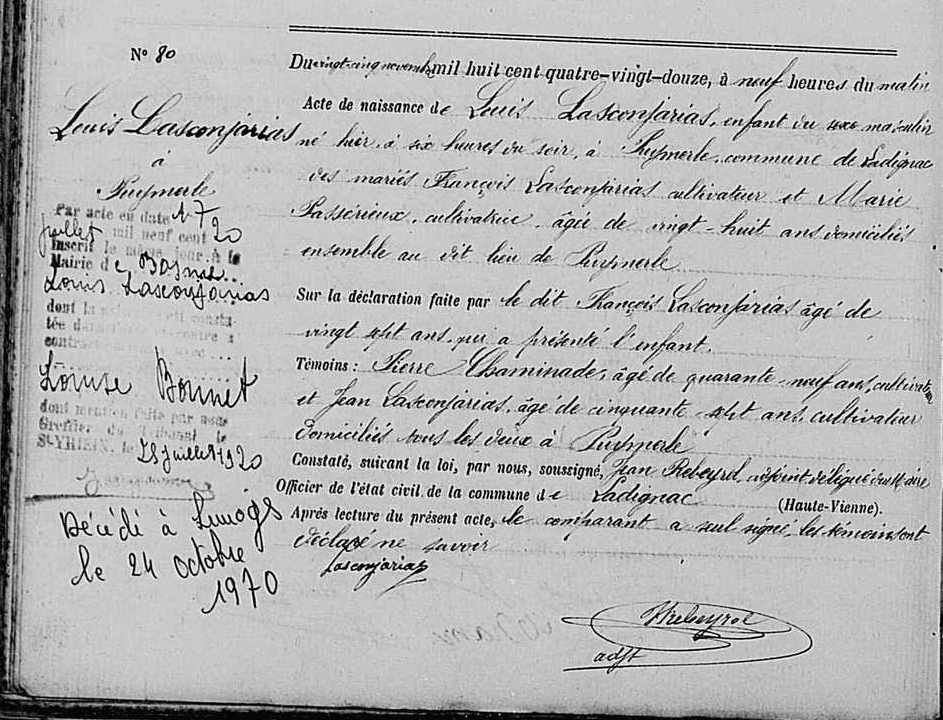 N° 80
Louis Lasconjarias
à
Puymerle
Par acte en date 17
juillet mil neuf cent 20
inscrit le même jour à la
Mairie de Bosmie
Louis Lasconjarias
dont la
contracté avec
Louise Bonnet
dont mention faite par nous
Greffier du Tribunal de
St-YRIEIX, le
28 juillet 1920
Décédé à Limoges
le 24 Octobre
1970
Du vingt-cinq novembre mil huit cent quatre-vingt-douze, à neuf heures du matin
Acte de naissance de Louis Lasconjarias, enfant du sexe masculin
né hier, à six heures du soir, à Puymerle, commune de Ladignac
des mariés François Lasconjarias cultivateur et Marie
Passérieux, cultivatrice, âgée de vingt-huit ans domiciliés
ensemble au dit lieu de Puymerle
Sur la déclaration faite par le dit François Lasconjarias âgé de
vingt sept ans, qui a présenté l'enfant.
Témoins : Pierre Chaminade, âgé de quarante-neuf ans, cultivateur
et Jean Lasconjarias, âgé de cinquante-sept ans, cultivateur
domiciliés tous les deux à Puymerle
Constaté, suivant la loi, par nous, soussigné, Jean Rebeyrol, adjoint délégué du Maire
Officier de l'état civil de la commune de Ladignac (Haute-Vienne).
Après lecture du présent acte, le comparant a seul signé, les témoins ont
déclaré ne savoir
Lasconjarias
Rebeyrol
adjt